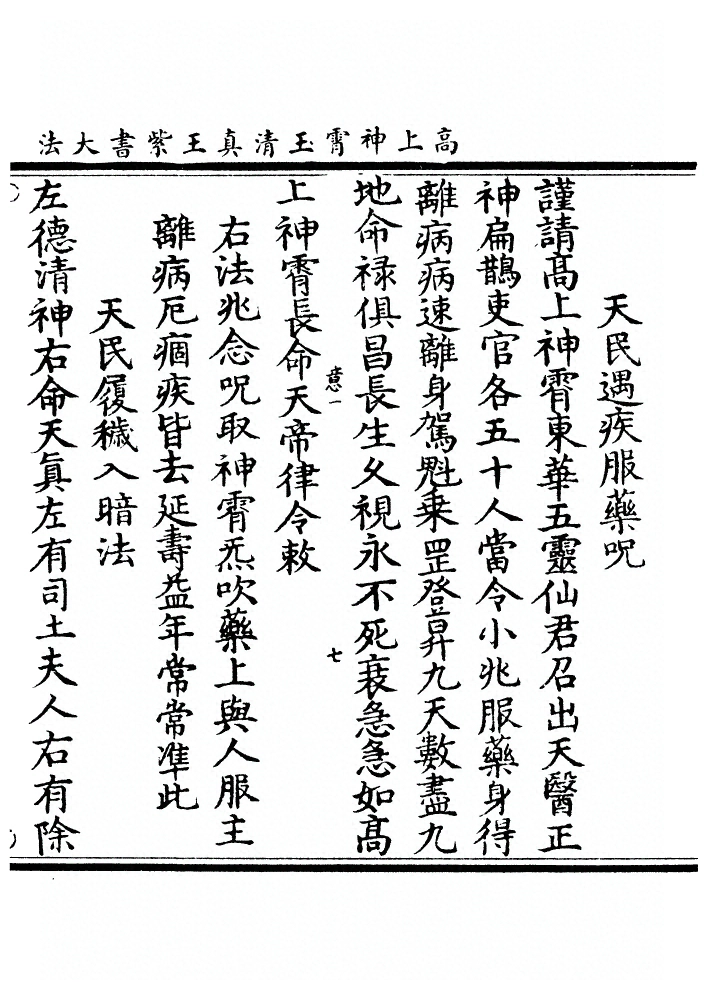 高上神霄玉清真王紫書大法
天民遇疾服藥呪
謹請髙上神霄東華五靈仙君召出天醫正
神扁鵲吏官各五十人當令小兆服藥身得
離病病速離身駕魁乗罡登昇九天數盡九
地命禄俱昌長生久視永不死衰急急如髙
意一
七
上神霄長命天帝律令敕
右法兆念呪取神霄炁吹藥上與人服主
離病厄痼疾皆去延壽益年常常準此
天民履穢入暗法
左德清神右命天真左有司土夫人右有除